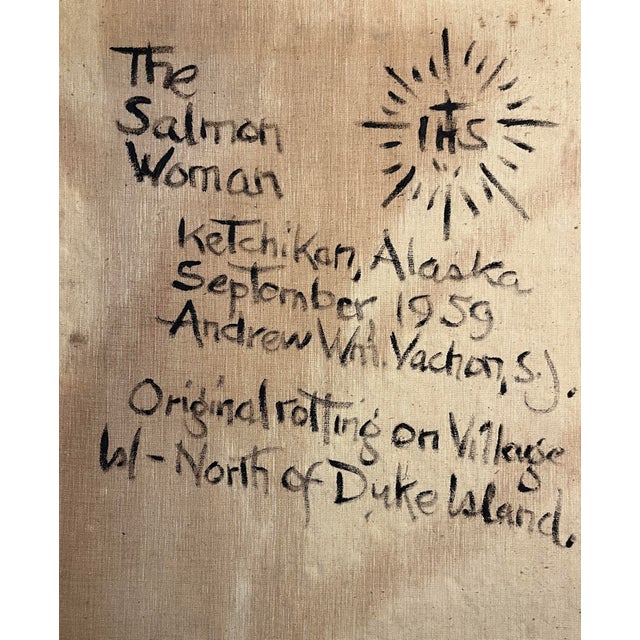 The
Salmon
Woman
IHS
Ketchikan, Alaska
September 1959
Andrew Wm. Vachon, S.J.
Original rotting on Village
Isl - North of Duke Island.